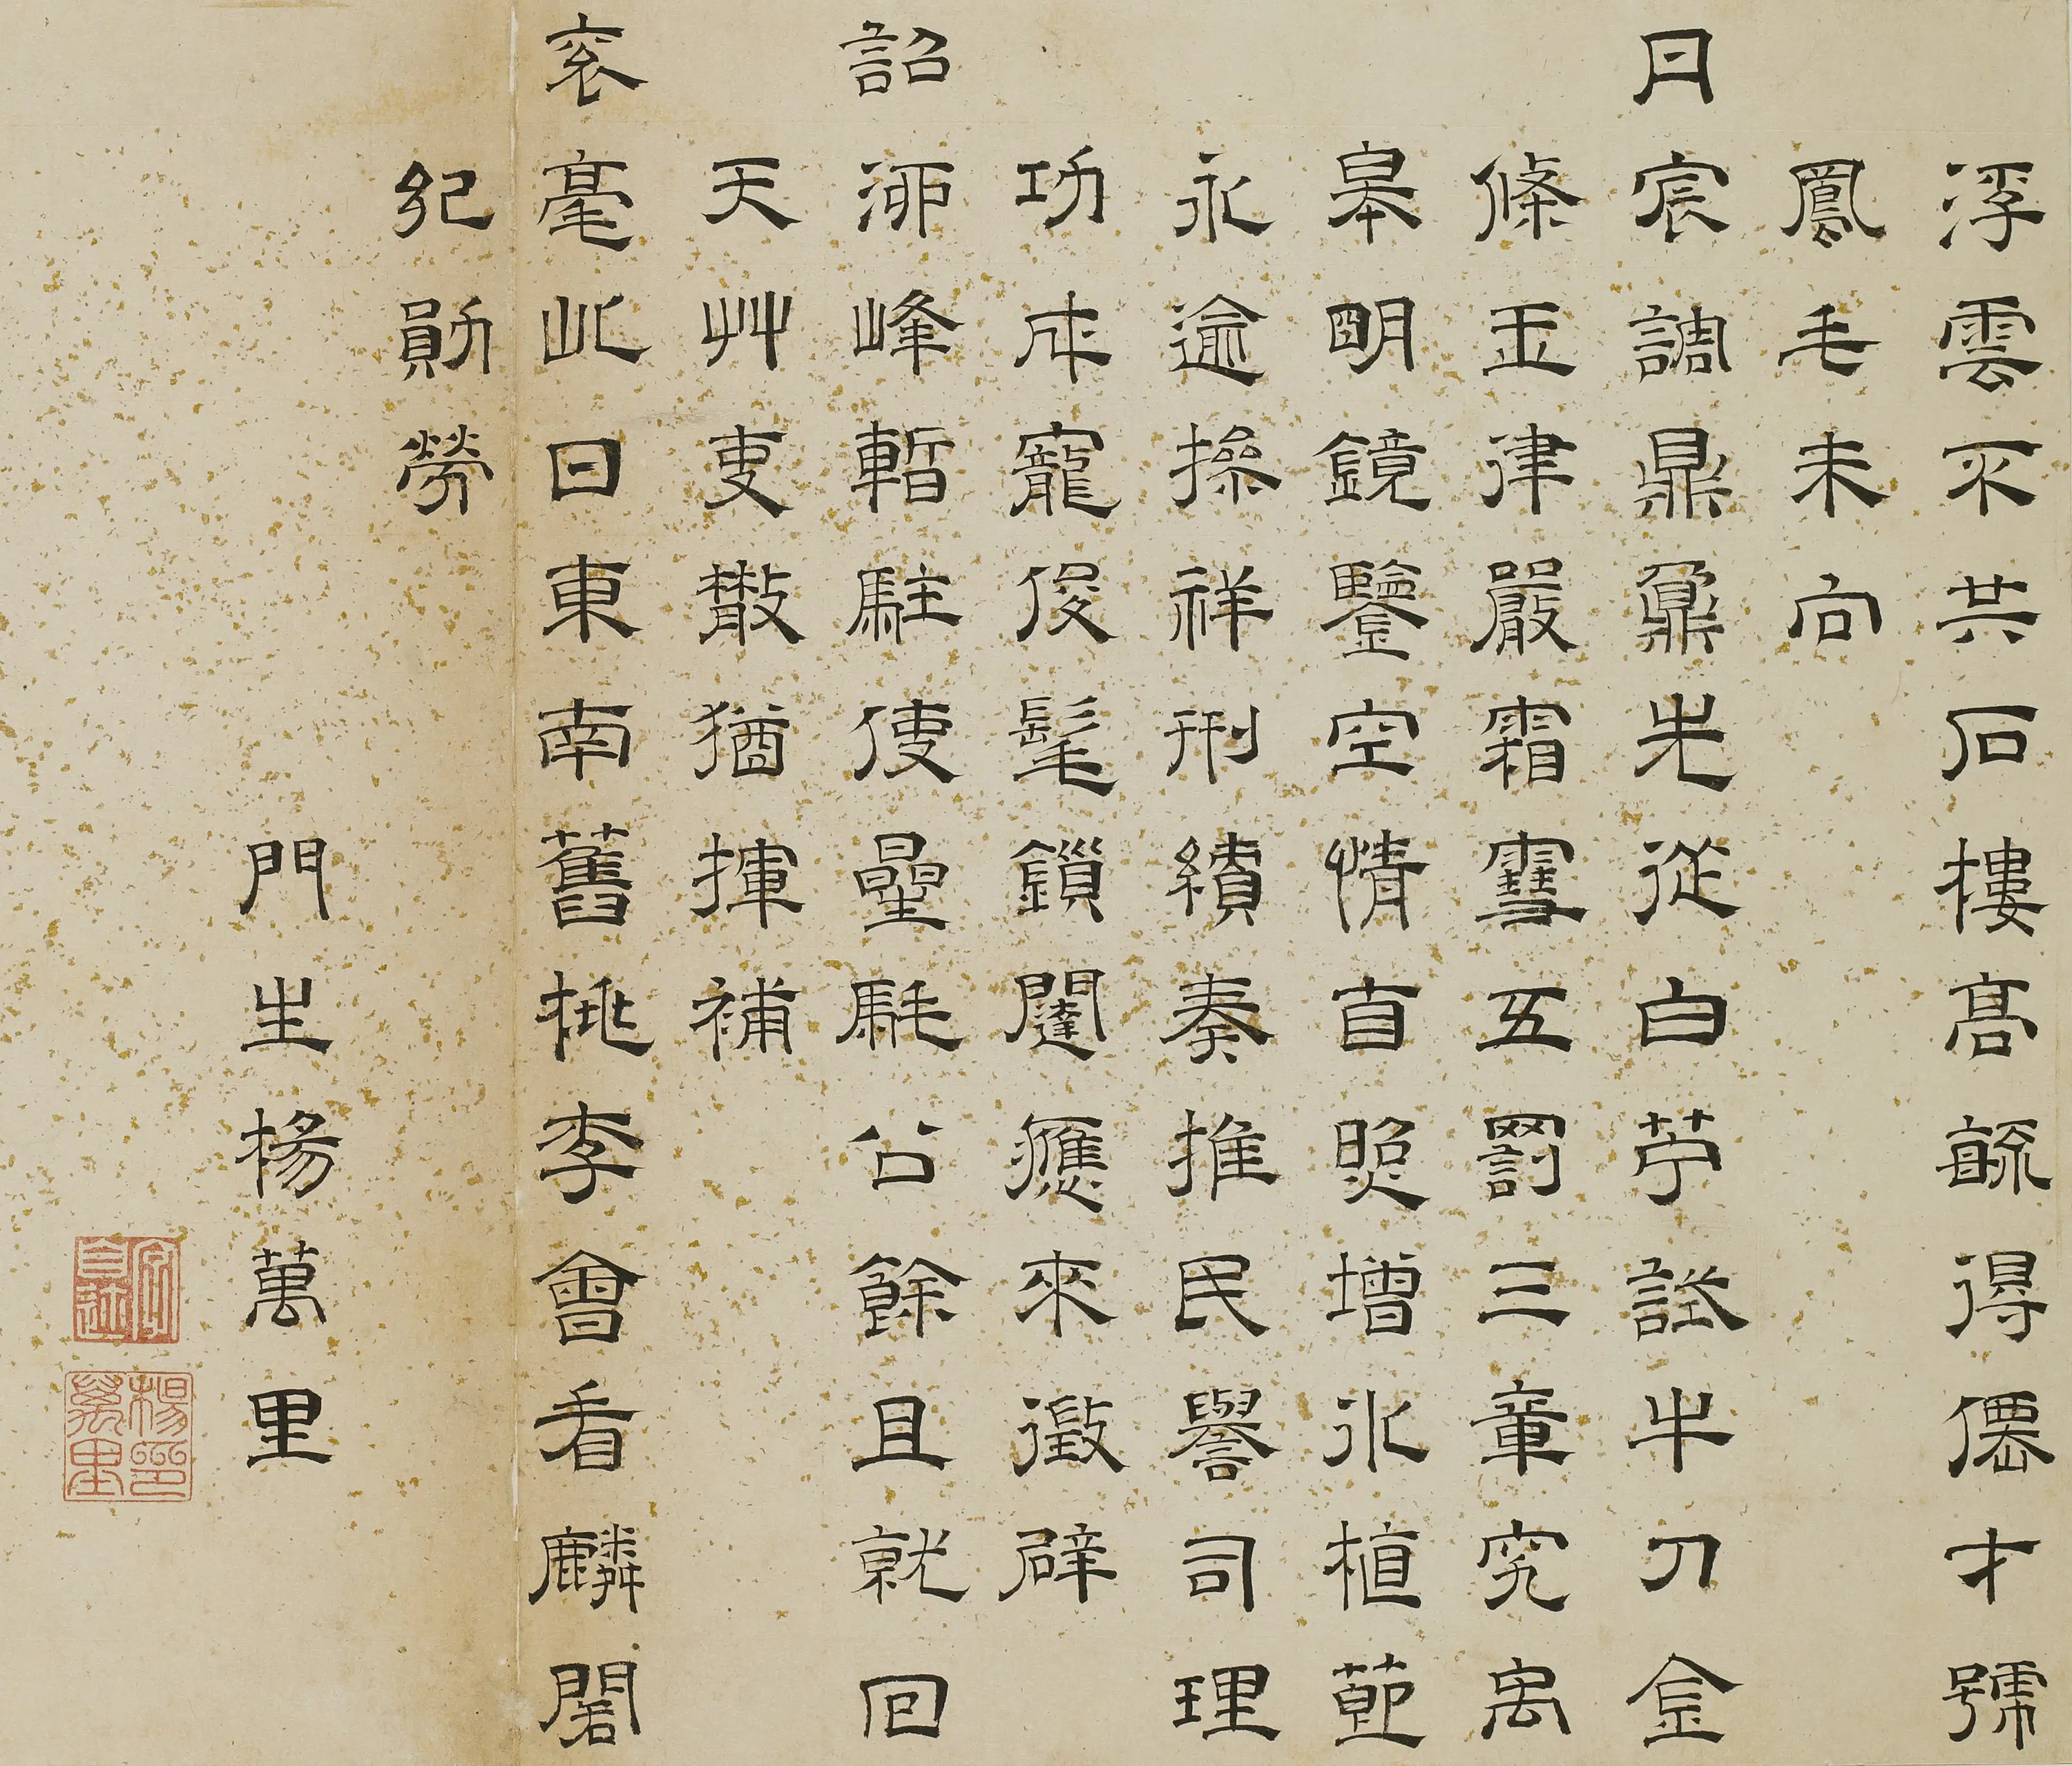 浮雲不共石樓高毓得僊才號
鳳毛未向
日宸調鼎鼐先從白苧試牛刀金
條玉律嚴霜雪五罰三章究禹
皋明鏡鑒空情自照增冰植節
永逾操祥刑績奏推民譽司理
功成寵俊髦鎖闥應來徵辟
詔泖峰暫駐使星䭷公餘且就回
天艸吏散猶揮補
袞毫此日東南舊桃李會看麟閣
紀勛勞
門生楊萬里
楊萬里印